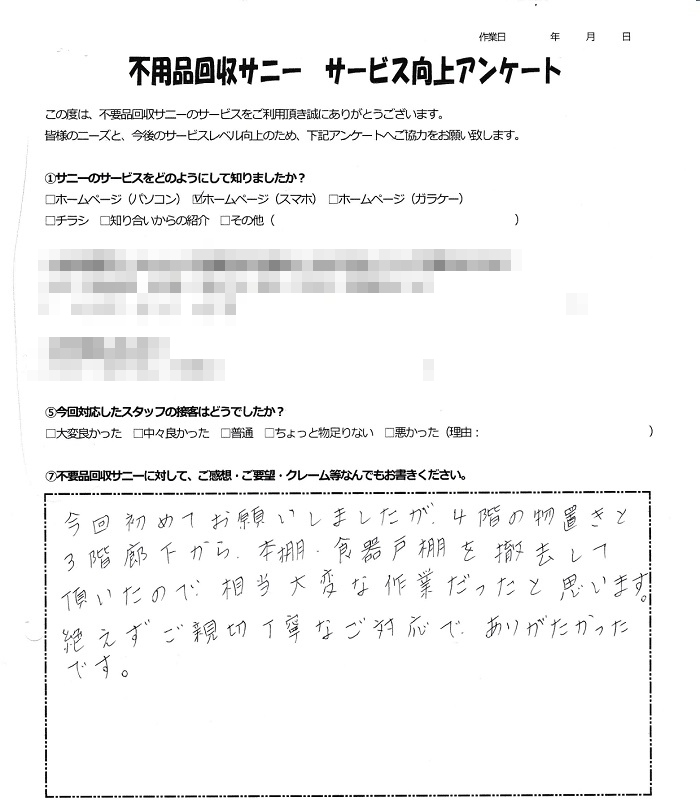 作業日　年　月　日
不用品回収サニー　サービス向上アンケート
この度は、不要品回収サニーのサービスをご利用頂き誠にありがとうございます。
皆様のニーズと、今後のサービスレベル向上のため、下記アンケートへご協力をお願い致します。
①サニーのサービスをどのようにして知りましたか？
□ホームページ（パソコン）　☑ホームページ（スマホ）　□ホームページ（ガラケー）
□チラシ　□知り合いからの紹介　□その他（　）
⑤今回対応したスタッフの接客はどうでしたか？
□大変良かった　□中々良かった　□普通　□ちょっと物足りない　□悪かった（理由：　）
⑦不要品回収サニーに対して、ご感想・ご要望・クレーム等なんでもお書きください。
今回初めてお願いしましたが、4階の物置きと
3階廊下から、本棚・食器戸棚を撤去して
頂いたので、相当大変な作業だったと思います。
絶えずご親切丁寧なご対応で、ありがたかった
です。